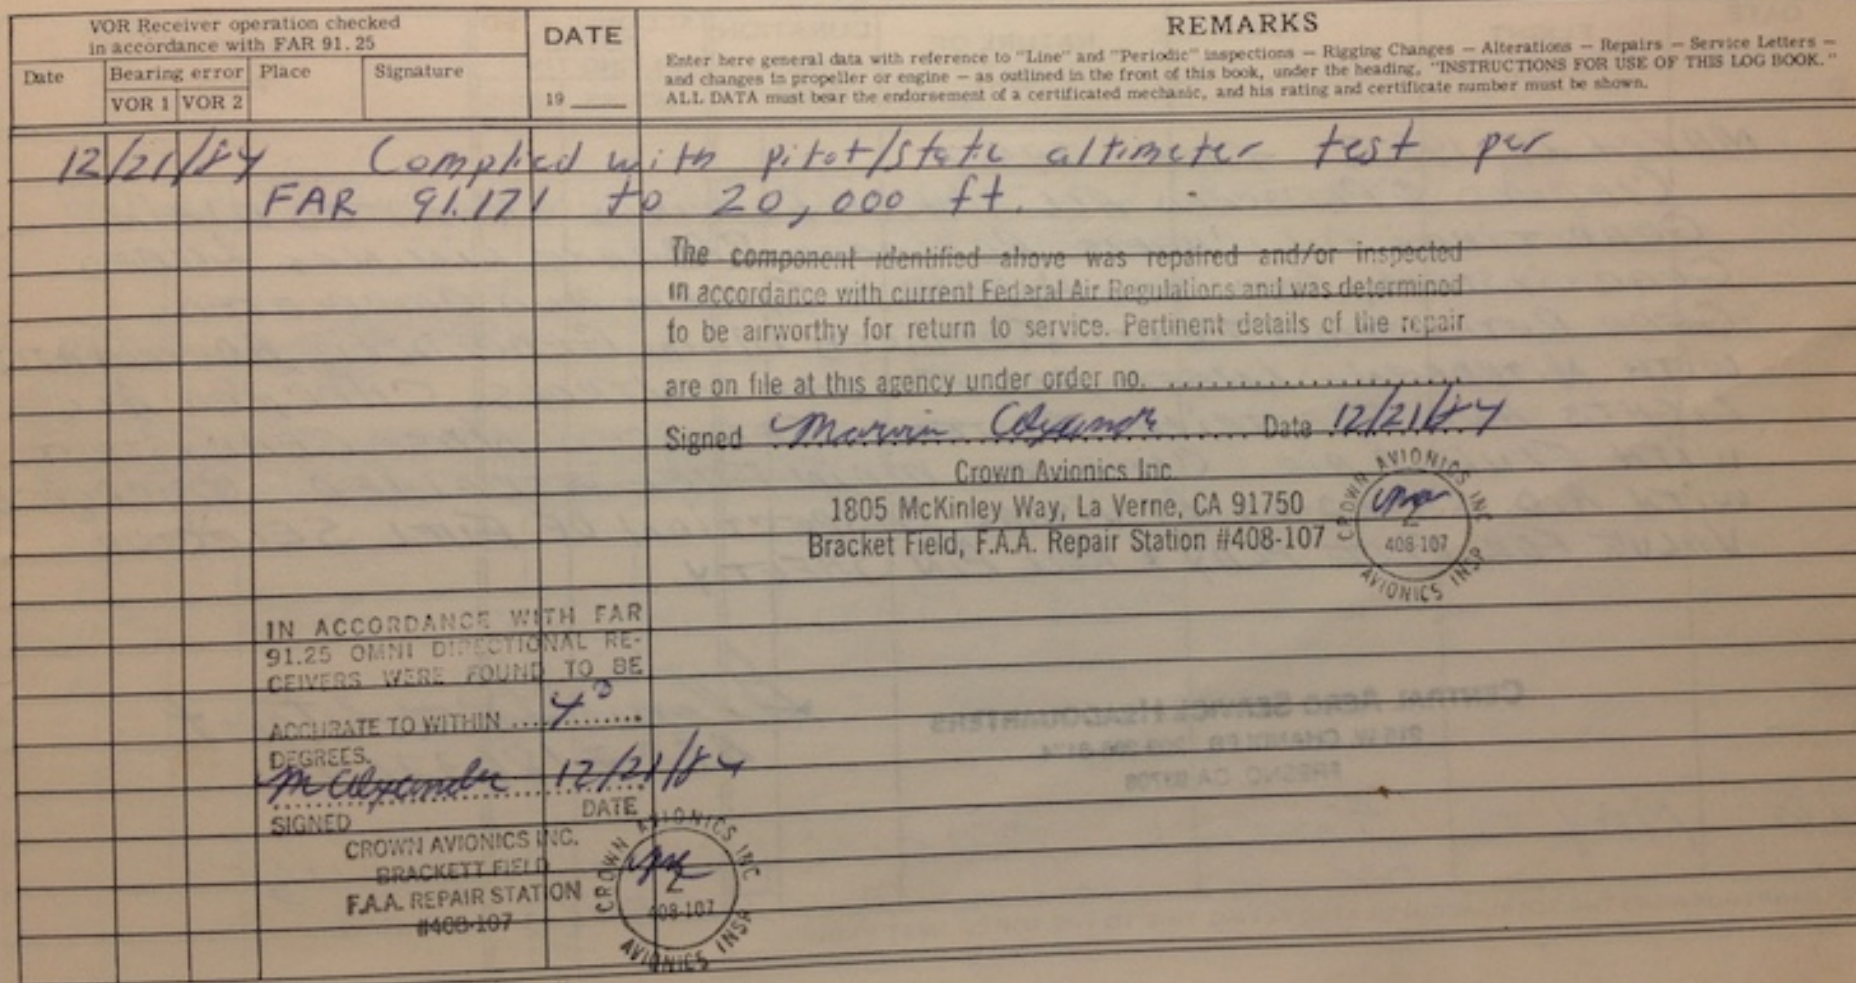 VOR Receiver operation checked
in accordance with FAR 91.25
DATE
19
Date
Bearing error
VOR 1 VOR 2
Place
Signature
REMARKS
Enter here general data with reference to "Line" and "Periodic" inspections — Rigging Changes — Alterations — Repairs — Service Letters —
and changes in propeller or engine — as outlined in the front of this book, under the heading, "INSTRUCTIONS FOR USE OF THIS LOG BOOK."
ALL DATA must bear the endorsement of a certificated mechanic, and his rating and certificate number must be shown.
12/21/84 Complied with pitot/static altimeter test per
FAR 91.171 to 20,000 ft.
The component identified above was repaired and/or inspected
in accordance with current Federal Air Regulations and was determined
to be airworthy for return to service. Pertinent details of the repair
are on file at this agency under order no. ......................
Signed Marvin Alexander Date 12/21/84
Crown Avionics Inc.
1805 McKinley Way, La Verne, CA 91750
Bracket Field, F.A.A. Repair Station #408-107
CROWN AVIONICS INC
2
408-107
AVIONICS INSP
IN ACCORDANCE WITH FAR
91.25 OMNI DIRECTIONAL RE-
CEIVERS WERE FOUND TO BE
ACCURATE TO WITHIN .... 4° ........
DEGREES.
M Alexander 12/21/84
SIGNED DATE
CROWN AVIONICS INC.
BRACKETT FIELD
F.A.A. REPAIR STATION
#408-107
CROWN AVIONICS INC
2
408-107
AVIONICS INSP
CENTRAL AERO SERVICE HEADQUARTERS